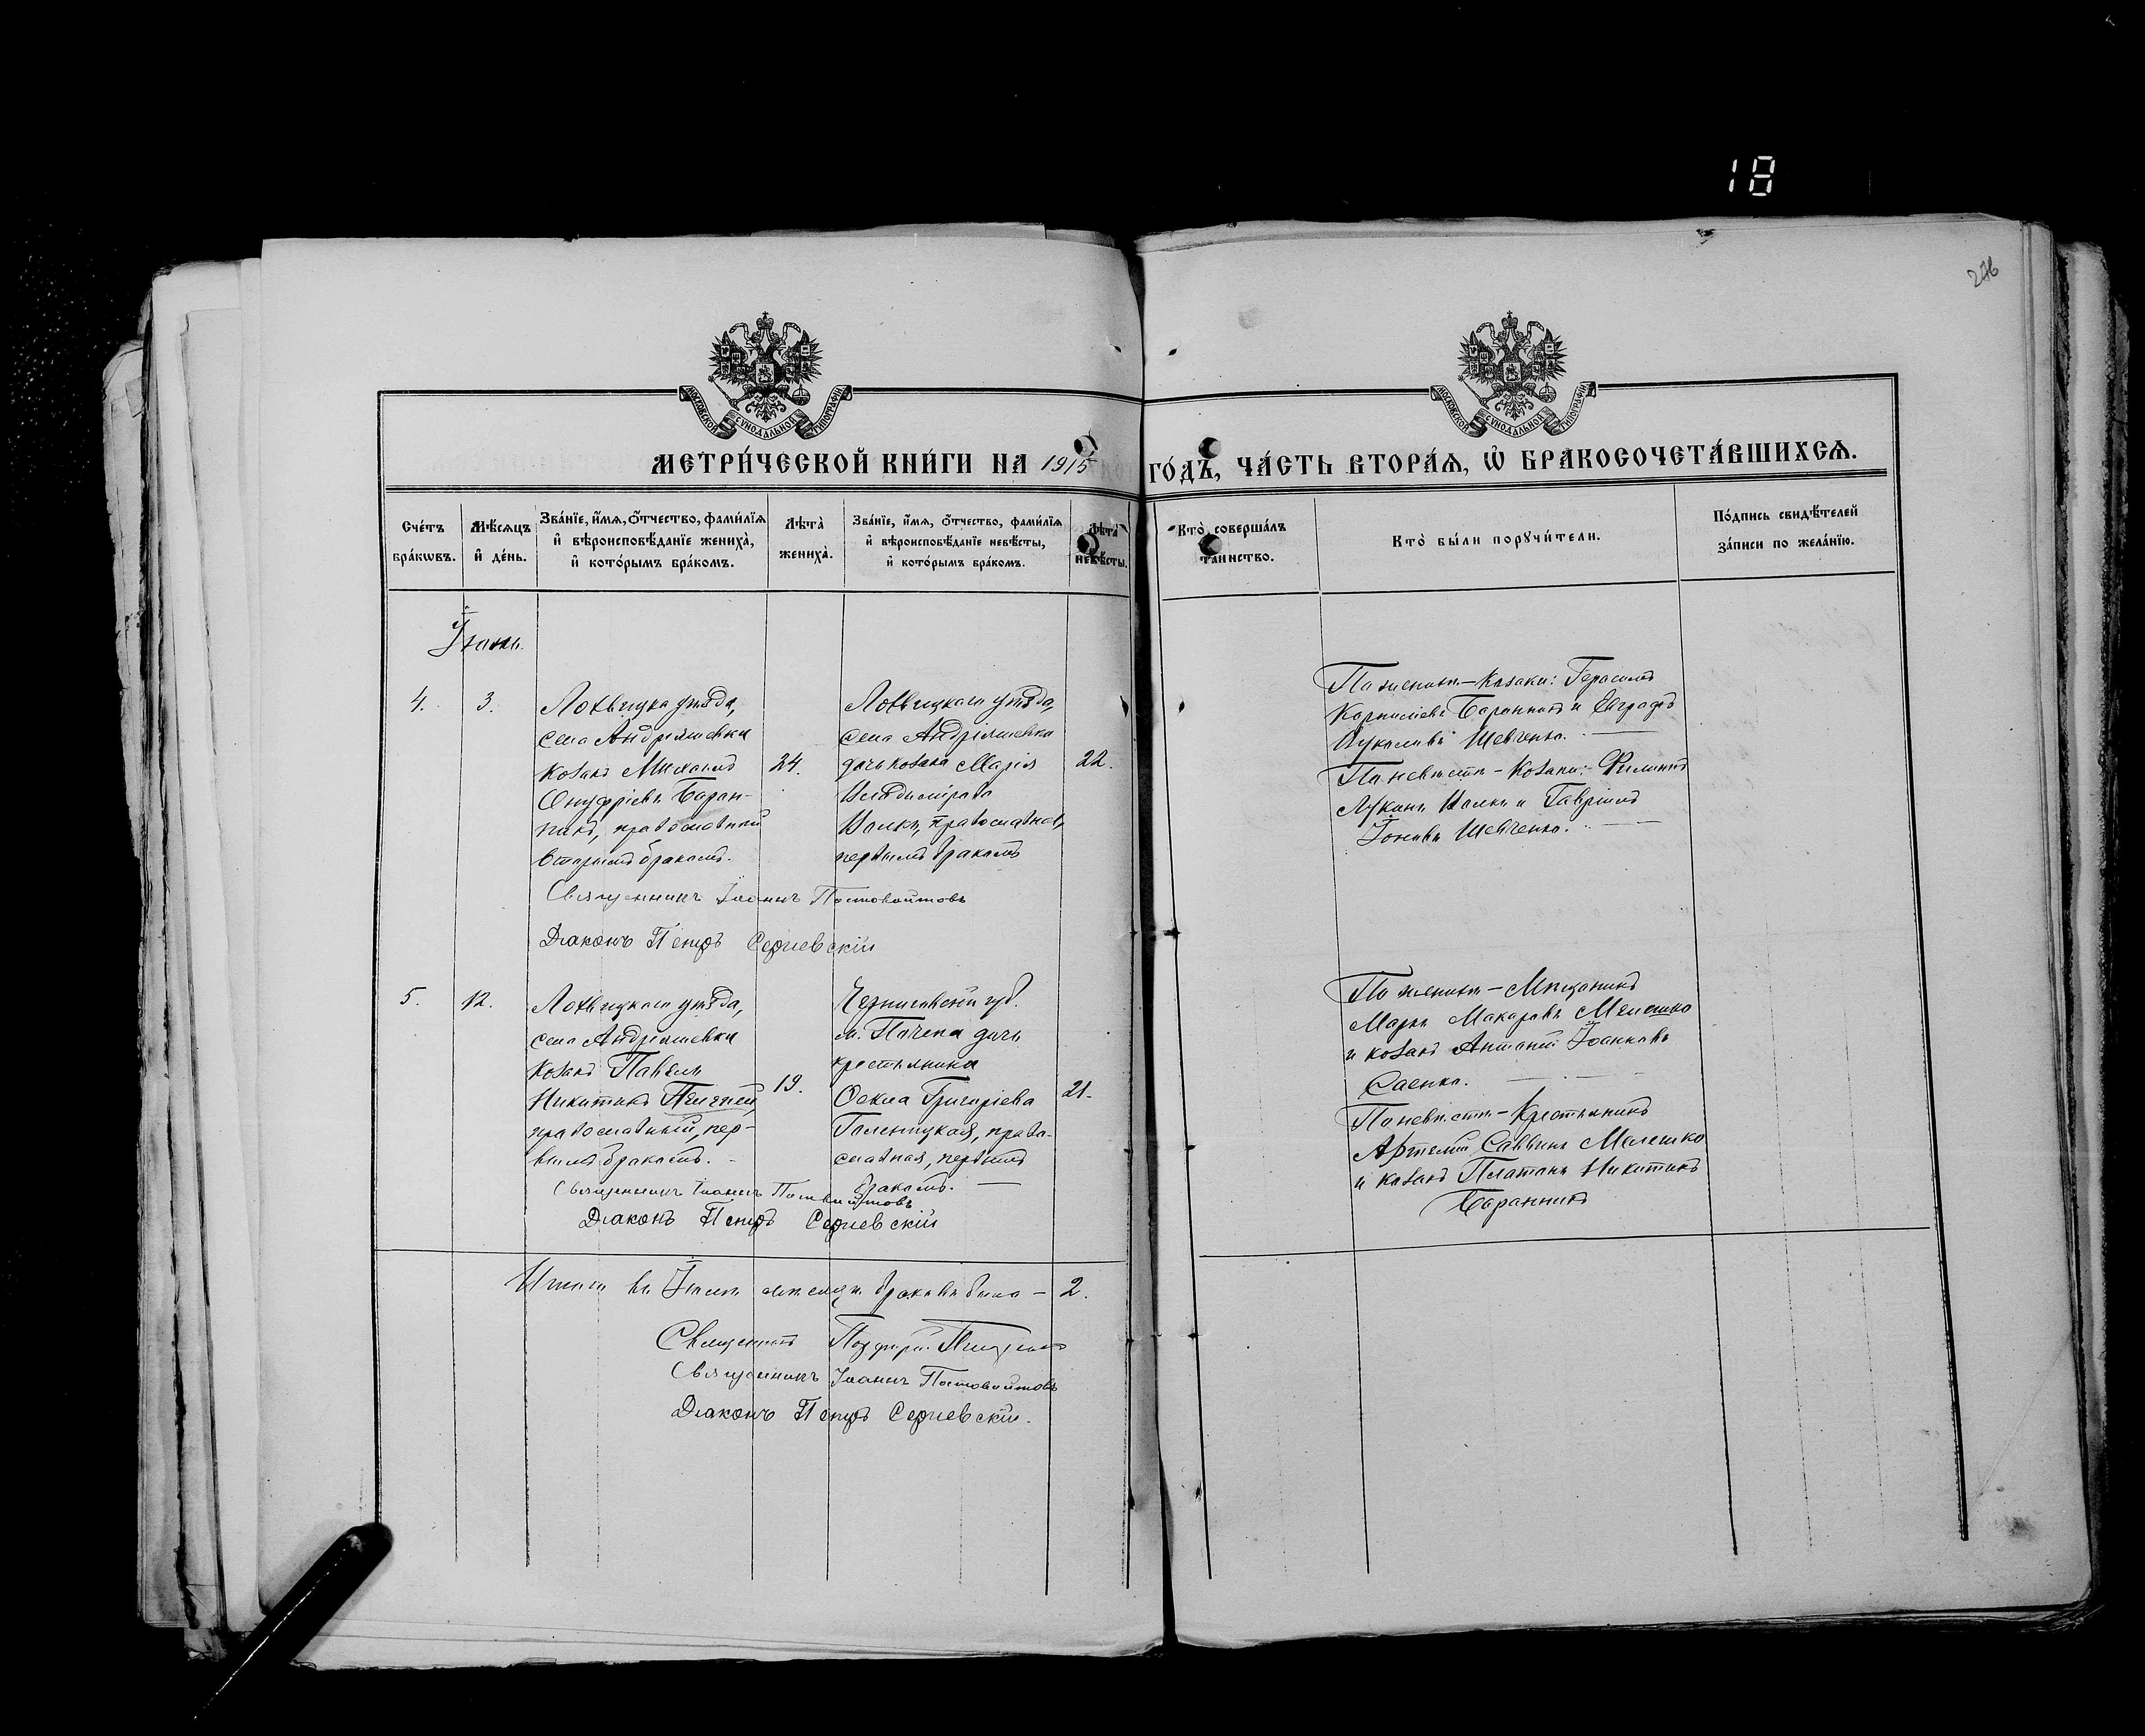 18
276
МОСКОВСКОЙ СУНОДАЛЬНОЙ ТИПОГРАФІИ
МОСКОВСКОЙ СУНОДАЛЬНОЙ ТИПОГРАФІИ
МЕТРИ́ЧЕСКОЙ КНИ́ГИ НА 1915 ГО́ДЪ, ЧА́СТЬ ВТОРА́Ѧ, Ѽ БРАКОСОЧЕТА́ВШИХСѦ.
Сче́тъ бра́кѡвъ.
Мѣ́сѧцъ и҆ де́нь.
Зва́нїе, и҆́мѧ, ѻ҆́тчество, фами́лїѧ и҆ вѣроисповѣ́данїе жениха̀, и҆ кото́рымъ бра́комъ.
Лѣта̀ жениха̀.
Зва́нїе, и҆́мѧ, ѻ҆́тчество, фами́лїѧ и҆ вѣроисповѣ́данїе невѣ́сты, и҆ кото́рымъ бра́комъ.
Лѣта̀ невѣ́сты.
Кто̀ соверша́лъ та́инство.
Кто̀ бы́ли порꙋчи́тели.
По́дпись свидѣ́телей за́писи по жела́нїю.
Іюнь
4.
3.
Лохвицка уѣзда,
села Андріяшевки
козакъ Михаилъ
Онуфріевъ Баран-
никъ, православный
вторымъ бракомъ.
24.
Лохвицкаго уѣзда,
села Андріяшевки
дочь козака Марія
Владимірова
православная,
первымъ бракомъ
22.
По женихѣ - козаки: Герасимъ
Корниліевъ Баранникъ и Евграфъ
Шевченко.
По невѣстѣ - козаки: Филиппъ
Лукинъ и Гавріилъ
Іоновъ Шевченко.
Священникъ Іоаннъ Постовойтовъ
Діаконъ Петръ Сергіевскій
5.
12.
Лохвицкаго уѣзда,
села Андріяшевки
козакъ Павелъ
Никитинъ
православный, пер-
вымъ бракомъ.
19.
Черниговской губ.
м. Почепа дочь
крестьянина
Ѳекла Григоріева
право-
славная, первымъ
бракомъ.
21.
По женихѣ - Мѣщанинъ
Маркъ Макаровъ
и козакъ Антоній Іоанновъ
Саенко.
По невѣстѣ - Крестьянинъ
Артемій Саввинъ Мелешко
и козакъ Платонъ Никитинъ
Баранникъ
Священникъ Іоаннъ Постовойтовъ
Діаконъ Петръ Сергіевскій
Итого въ Іюнѣ мѣсяцѣ браковъ было - 2.
Священникъ Порфирій
Священникъ Іоаннъ Постовойтовъ
Діаконъ Петръ Сергіевскій.